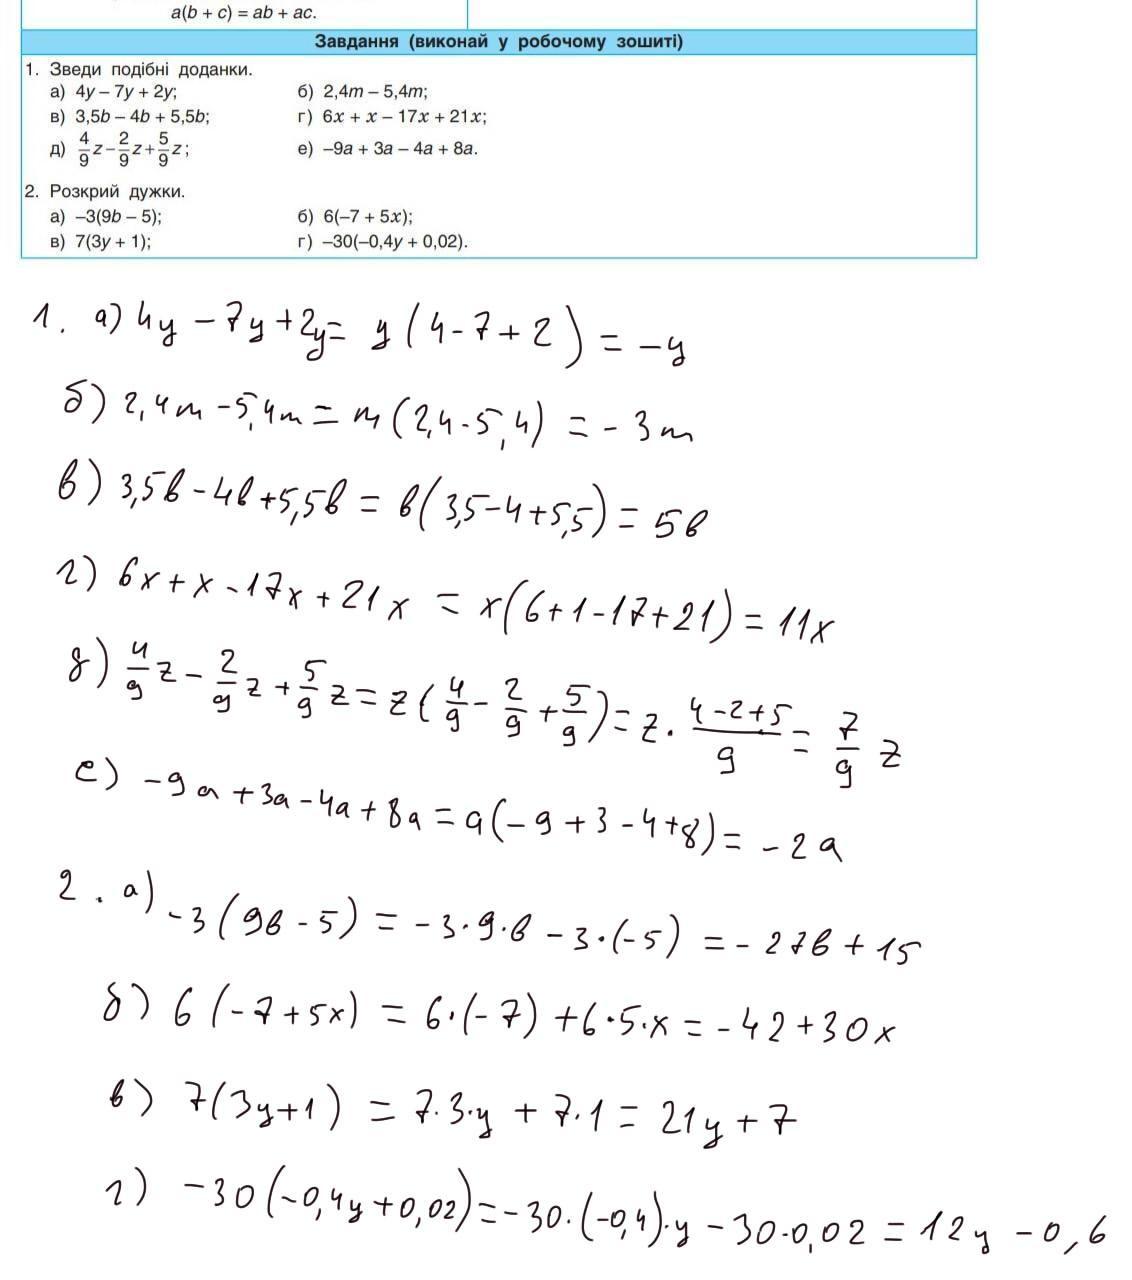 a(b + c) = ab + ac.
Завдання (виконай у робочому зошиті)
1. Зведи подібні доданки.
а) 4y – 7y + 2y; б) 2,4m – 5,4m;
в) 3,5b – 4b + 5,5b; г) 6x + x – 17x + 21x;
д) 4/9 z – 2/9 z + 5/9 z; е) –9a + 3a – 4a + 8a.
2. Розкрий дужки.
а) –3(9b – 5); б) 6(–7 + 5x);
в) 7(3y + 1); г) –30(–0,4y + 0,02).
1. а) 4y – 7y + 2y = y(4 - 7 + 2) = –y
б) 2,4m – 5,4m = m(2,4 - 5,4) = - 3m
в) 3,5b – 4b + 5,5b = b(3,5 – 4 + 5,5) = 5b
г) 6x + x - 17x + 21x = x(6 + 1 - 17 + 21) = 11x
д) 4/9 z – 2/9 z + 5/9 z = z(4/9 – 2/9 + 5/9) = z · (4 – 2 + 5)/9 = 7/9 z
е) –9a + 3a – 4a + 8a = a(–9 + 3 – 4 + 8) = – 2a
2. а) -3(9b - 5) = –3·9·b – 3·(–5) = – 27b + 15
б) 6(–7 + 5x) = 6·(–7) + 6·5·x = – 42 + 30x
в) 7(3y + 1) = 7·3·y + 7·1 = 21y + 7
г) –30(–0,4y + 0,02) = –30·(–0,4)·y – 30·0,02 = 12y – 0,6